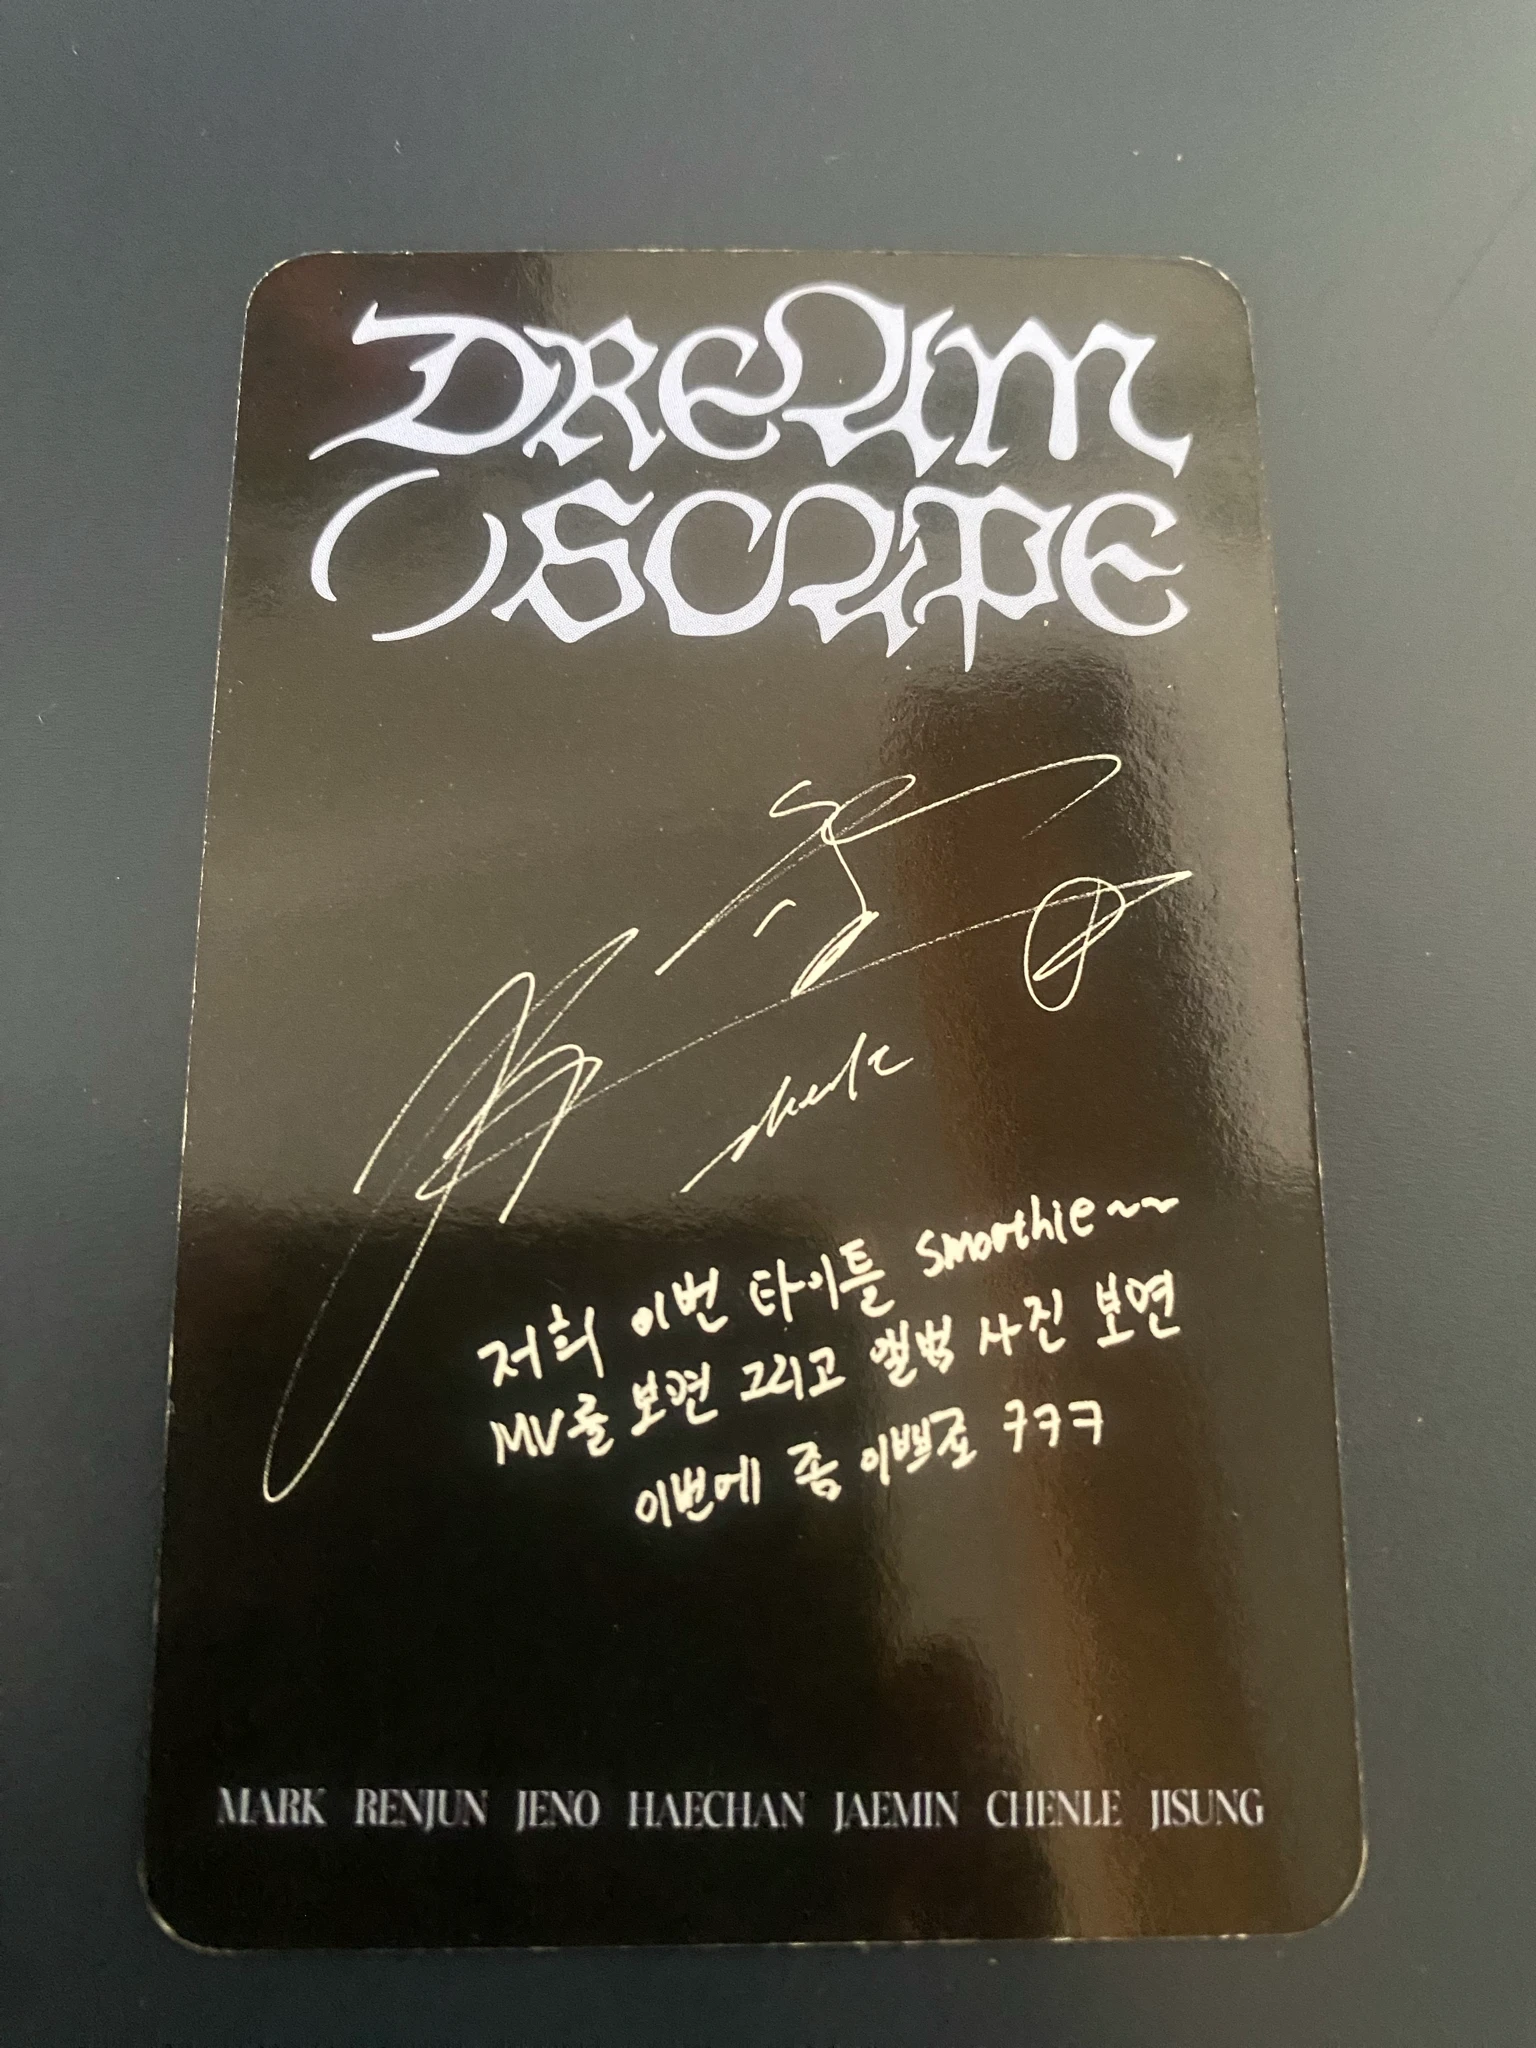 DREAM
SCAPE
chenle
저희 이번 타이틀 smoothie~~
MV를 보면 그리고 앨범 사진 보면
이번에 좀 이쁘죠 ㅋㅋㅋ
MARK RENJUN JENO HAECHAN JAEMIN CHENLE JISUNG